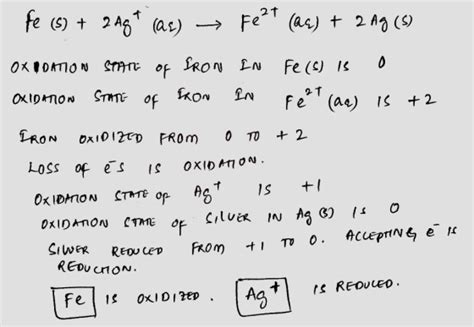 Fe (s) + 2Ag⁺ (aq) → Fe²⁺ (aq) + 2 Ag (s)
OXIDATION STATE OF IRON IN Fe (s) IS 0
OXIDATION STATE OF IRON IN Fe²⁺ (aq) IS +2
IRON OXIDIZED FROM 0 TO +2
LOSS OF ēs IS OXIDATION.
OXIDATION STATE OF Ag⁺ IS +1
OXIDATION STATE OF SILVER IN Ag (s) IS 0
SILVER REDUCED FROM +1 TO 0. ACCEPTING ē IS
REDUCTION.
Fe IS OXIDIZED. Ag⁺ IS REDUCED.